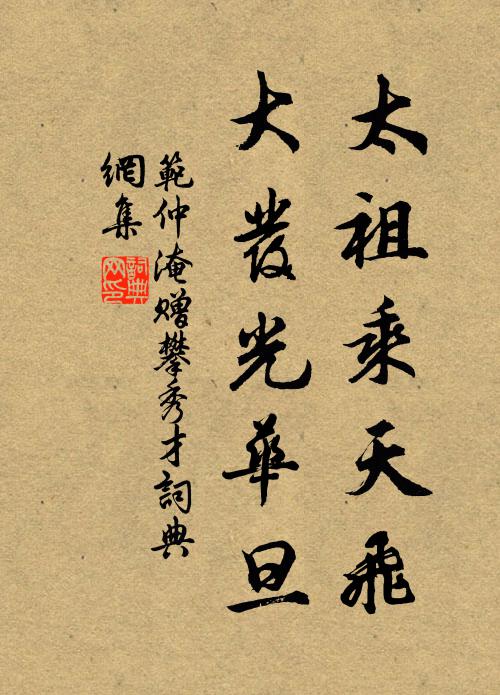 太祖乘天飛
大發光華旦
範仲淹赠攀秀才詞典
網集
詞典
网印